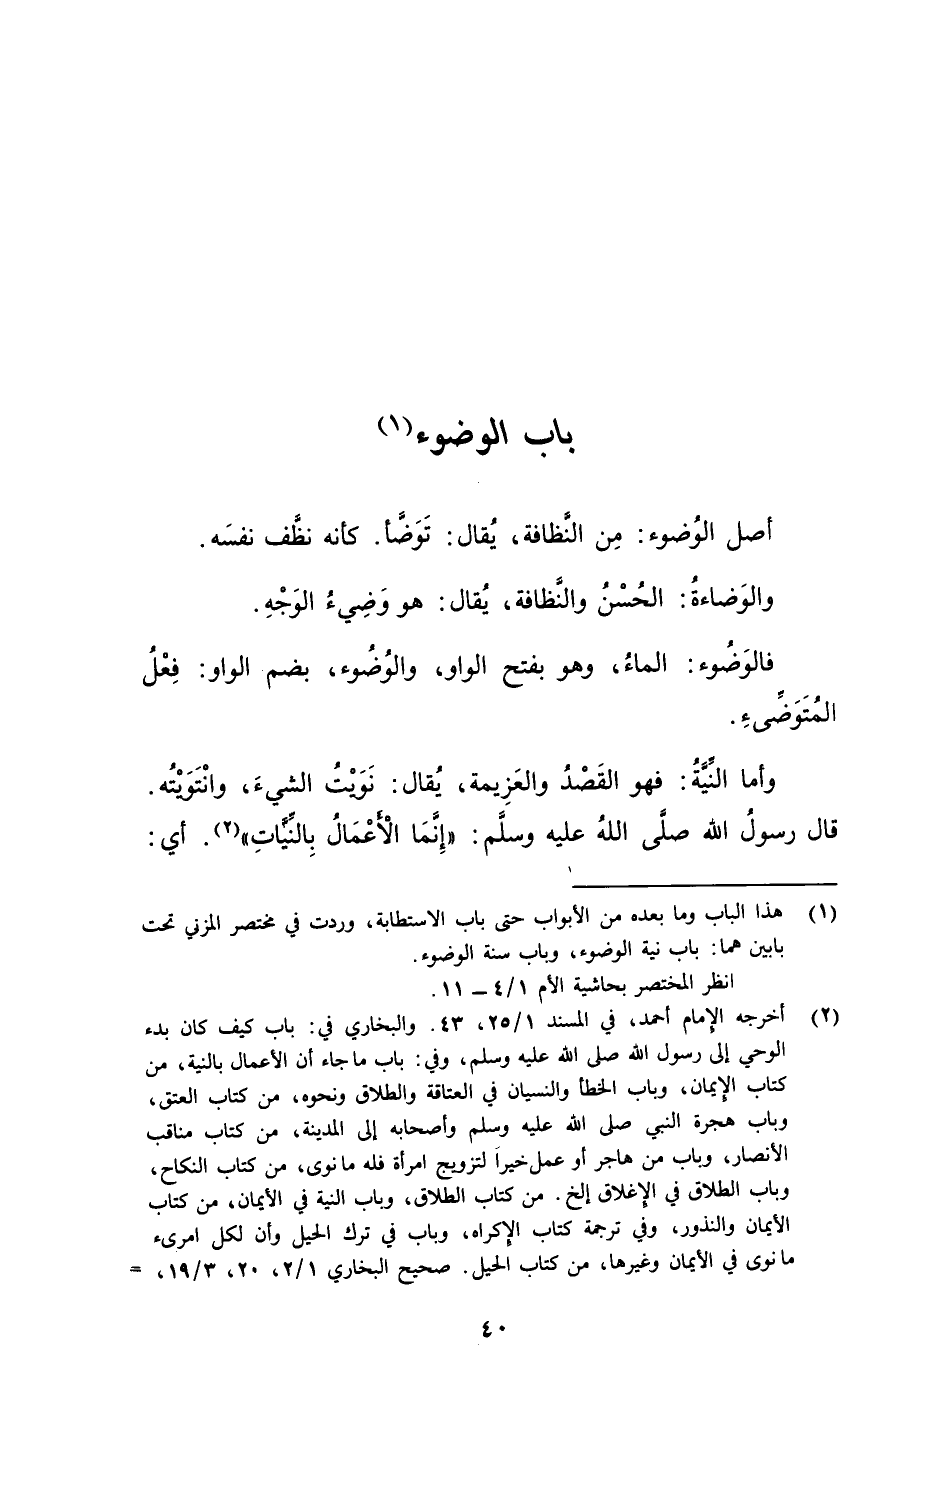 باب الوضوء(١)
أصل الوُضوء: مِن النَّظافة، يُقال: تَوَضَّأ. كأنه نظَّف نفسَه.
والوَضاءةُ: الحُسْنُ والنَّظافة، يُقال: هو وَضِيءُ الوَجْهِ.
فالوَضُوء: الماءُ، وهو بفتح الواو، والوُضُوء، بضم الواو: فِعْلُ
المُتَوَضِّىءِ.
وأما النِّيَّةُ: فهو القَصْدُ والعَزِيمة، يُقال: نَوَيْتُ الشيءَ، وانْتَوَيْتُه.
قال رسولُ الله صلَّى اللهُ عليه وسلَّم: «إِنَّمَا الْأَعْمَالُ بِالنِّيَّاتِ»(٢). أي:
(١) هذا الباب وما بعده من الأبواب حتى باب الاستطابة، وردت في مختصر المزني تحت
بابين هما: باب نية الوضوء، وباب سنة الوضوء.
انظر المختصر بحاشية الأم ٤/١ ــ ١١.
(٢) أخرجه الإمام أحمد، في المسند ٢٥/١، ٤٣. والبخاري في: باب كيف كان بدء
الوحي إلى رسول الله صلى الله عليه وسلم، وفي: باب ما جاء أن الأعمال بالنية، من
كتاب الإيمان، وباب الخطأ والنسيان في العتاقة والطلاق ونحوه، من كتاب العتق،
وباب هجرة النبي صلى الله عليه وسلم وأصحابه إلى المدينة، من كتاب مناقب
الأنصار، وباب من هاجر أو عمل خيراً لتزويج امرأة فله ما نوى، من كتاب النكاح،
وباب الطلاق في الإغلاق إلخ. من كتاب الطلاق، وباب النية في الأيمان، من كتاب
الأيمان والنذور، وفي ترجمة كتاب الإكراه، وباب في ترك الحيل وأن لكل امرىء
ما نوى في الأيمان وغيرها، من كتاب الحيل. صحيح البخاري ٢/١، ٢٠، ١٩/٣، =
٤٠